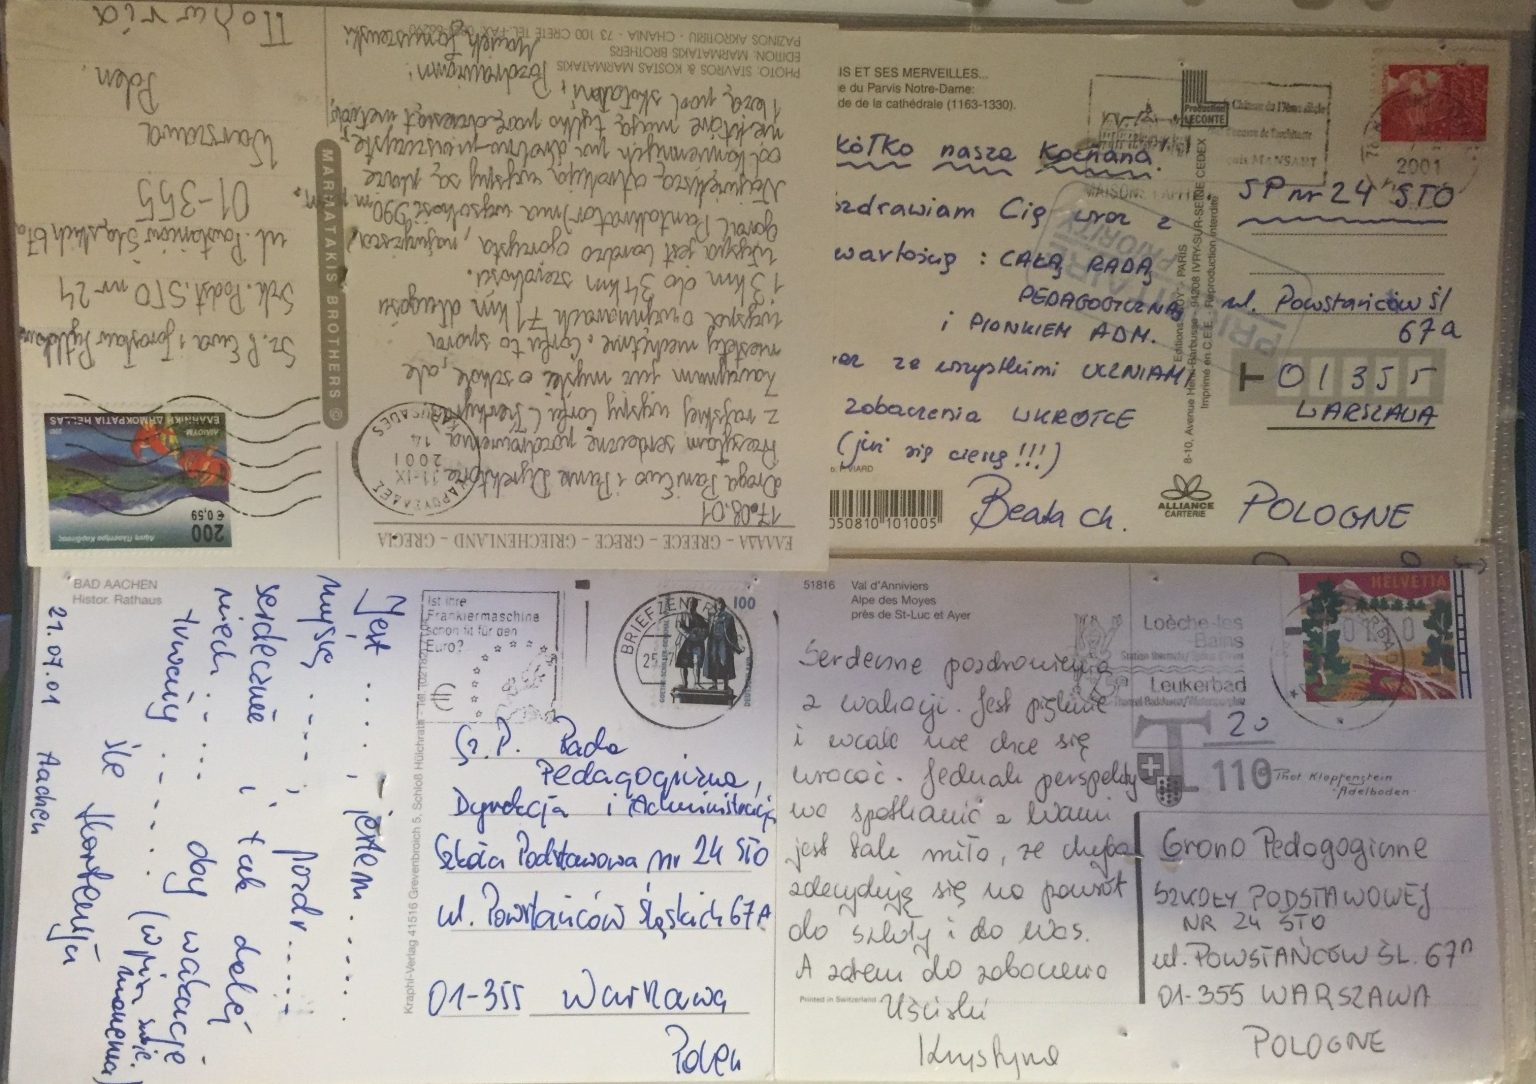 ΕΛΛΑΔΑ – GREECE – GRECE – GRIECHENLAND – GRECIA
17.08.01
Droga Pani Ewo i Panie Dyrektorze
Przesyłam serdeczne pozdrowienia
z rajskiej wyspy Corfu (Kerkyra).
Zaczynam już myśleć o szkole, ale
niestety niechętnie. Corfu to spora
wyspa o wymiarach 71 km długości
i 3 km do 34 km szerokości.
Wyspa jest bardzo górzysta, najwyższa
góra (Pantokrator) ma wysokość 990 m n.p.m.
Największą atrakcją wyspy są plaże
od kamiennych po
niektóre mają tylko parędziesiąt metrów
i leżą pod skałami. Pozdrawiam!
Marek
PHOTO: STAVROS & KOSTAS MARMATAKIS
EDITION: MARMATAKIS BROTHERS
PAZINOS AKROTIRIU - CHANIA - 73 100 CRETE TEL.-FAX
MARMATAKIS BROTHERS ©
200
€ 0,59
ΕΛΛΗΝΙΚΗ ΔΗΜΟΚΡΑΤΙΑ HELLAS
2001
Sz. P. Ewa i Jarosław
Szk. Podst. STO nr 24
ul. Powstańców Śląskich 67a
01-355
Warszawa
Polen
IS ET SES MERVEILLES...
e du Parvis Notre-Dame:
de de la cathédrale (1163-1330).
Production
LECONTE
Château du 17ème siècle
MANSART
2001
kółko nasza kochana!
ozdrawiam Cię wraz z
wartością : CAŁĄ RADĄ
PEDAGOGICZNĄ
i PIONKIEM ADM.
raz ze wszystkimi UCZNIAMI
zobaczenia WKRÓTCE
(już się cieszę !!!)
Beata Ch.
050810 101005
PRIORITAIRE
PRIORITY
8-10, Avenue Henri-Barbusse - 94208 IVRY-SUR-SEINE CEDEX
Imprimé en C.E.E. Reproduction interdite
ALLIANCE
CARTERIE
SP nr 24 STO
ul. Powstańców Śl
67a
01355
WARSZAWA
POLOGNE
BAD AACHEN
Histor. Rathaus
21.07.01 Aachen
Jest . . . . , jestem . . . . .
myślę . . . . ; pozdr. . . . .
serdecznie i tak dalej
niech . . . . oby wakacje
trwały . . . . . (wpisz swoje
marzenia)
śle Hortensja
Kraphl-Verlag 41516 Grevenbroich 5, Schloß Hülchrath
Ist ihre
Frankiermaschine
schon fit für den
Euro?
BRIEFZENTRUM
100
Sz. P. Rada
Pedagogiczna,
Dyrekcja i Administracja
Szkoła Podstawowa nr 24 STO
ul. Powstańców Śląskich 67A
01-355 Warszawa
Polen
51816 Val d'Anniviers
Alpe des Moyes
près de St-Luc et Ayer
Loèche-les
Bains
Leukerbad
HELVETIA
T 20
110
Thot Klopfenstein
Adelboden
Serdeczne pozdrowienia
z wakacji. Jest pięknie
i wcale nie chce się
wracać. Jednak perspekty
wa spotkania z Wami
jest tak miła, że chyba
zdecyduję się na powrót
do szkoły i do Was.
A zatem do zobaczenia
Uściski
Krystyna
Printed in Switzerland
Grono Pedagogiczne
SZKOŁY PODSTAWOWEJ
NR 24 STO
ul. POWSTAŃCÓW ŚL. 67A
01-355 WARSZAWA
POLOGNE